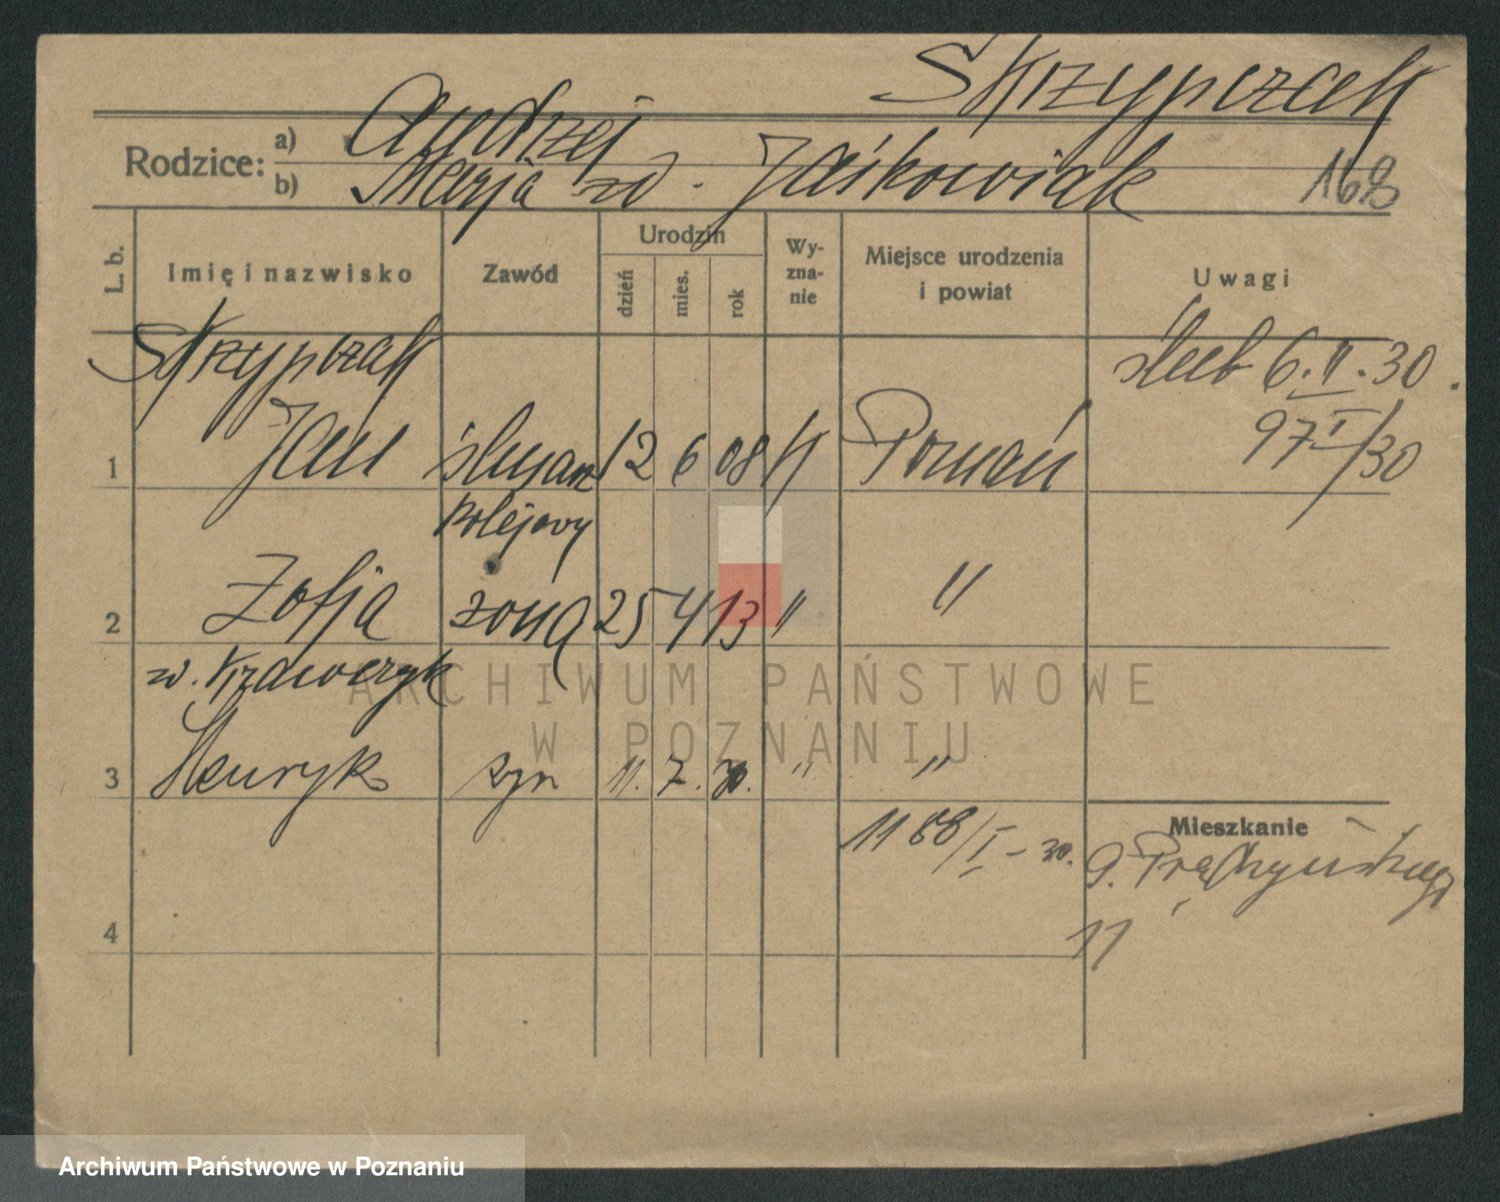 Skrzypczak
Rodzice: a) Andrzej
b) Marja zd. Jaśkowiak 168
L. b. Imię i nazwisko Zawód Urodzin dzień mies. rok Wy-zna-nie Miejsce urodzenia i powiat Uwagi
Skrzypczak ślub 6.II.30.
1 Jan ślusarz 12 6 08 K Poznań 97 I/30
kolejowy
2 Zofja żona 25 4 13 " "
zd. Krawczyk
ARCHIWUM PAŃSTWOWE
W POZNANIU
3 Henryk syn 11. 7. 30. " "
1188/I - 30.
Mieszkanie
G. Prądzyńskiego
11
4
Archiwum Państwowe w Poznaniu